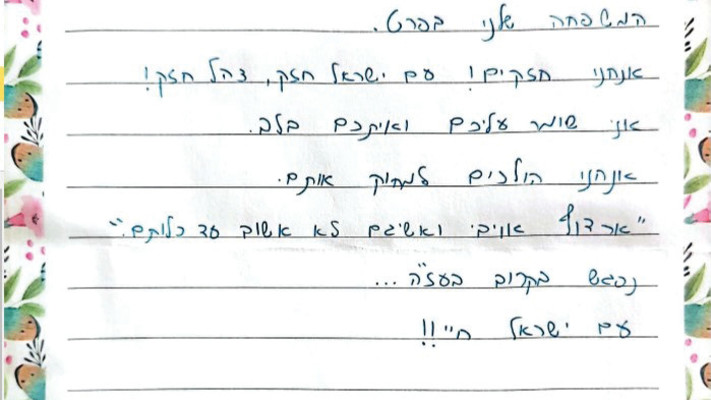 המשפחה שלי בפרט.
אנחנו חזקים! עם ישראל חזק, צהל חזק!
אני שומר עליכם ואיתכם בלב.
אנחנו הולכים למחוק אותם.
"ארדוף אויבי ואשיגם לא אשוב עד כלותם."
נפגש בקרוב בעז"ה...
עם ישראל חי!!